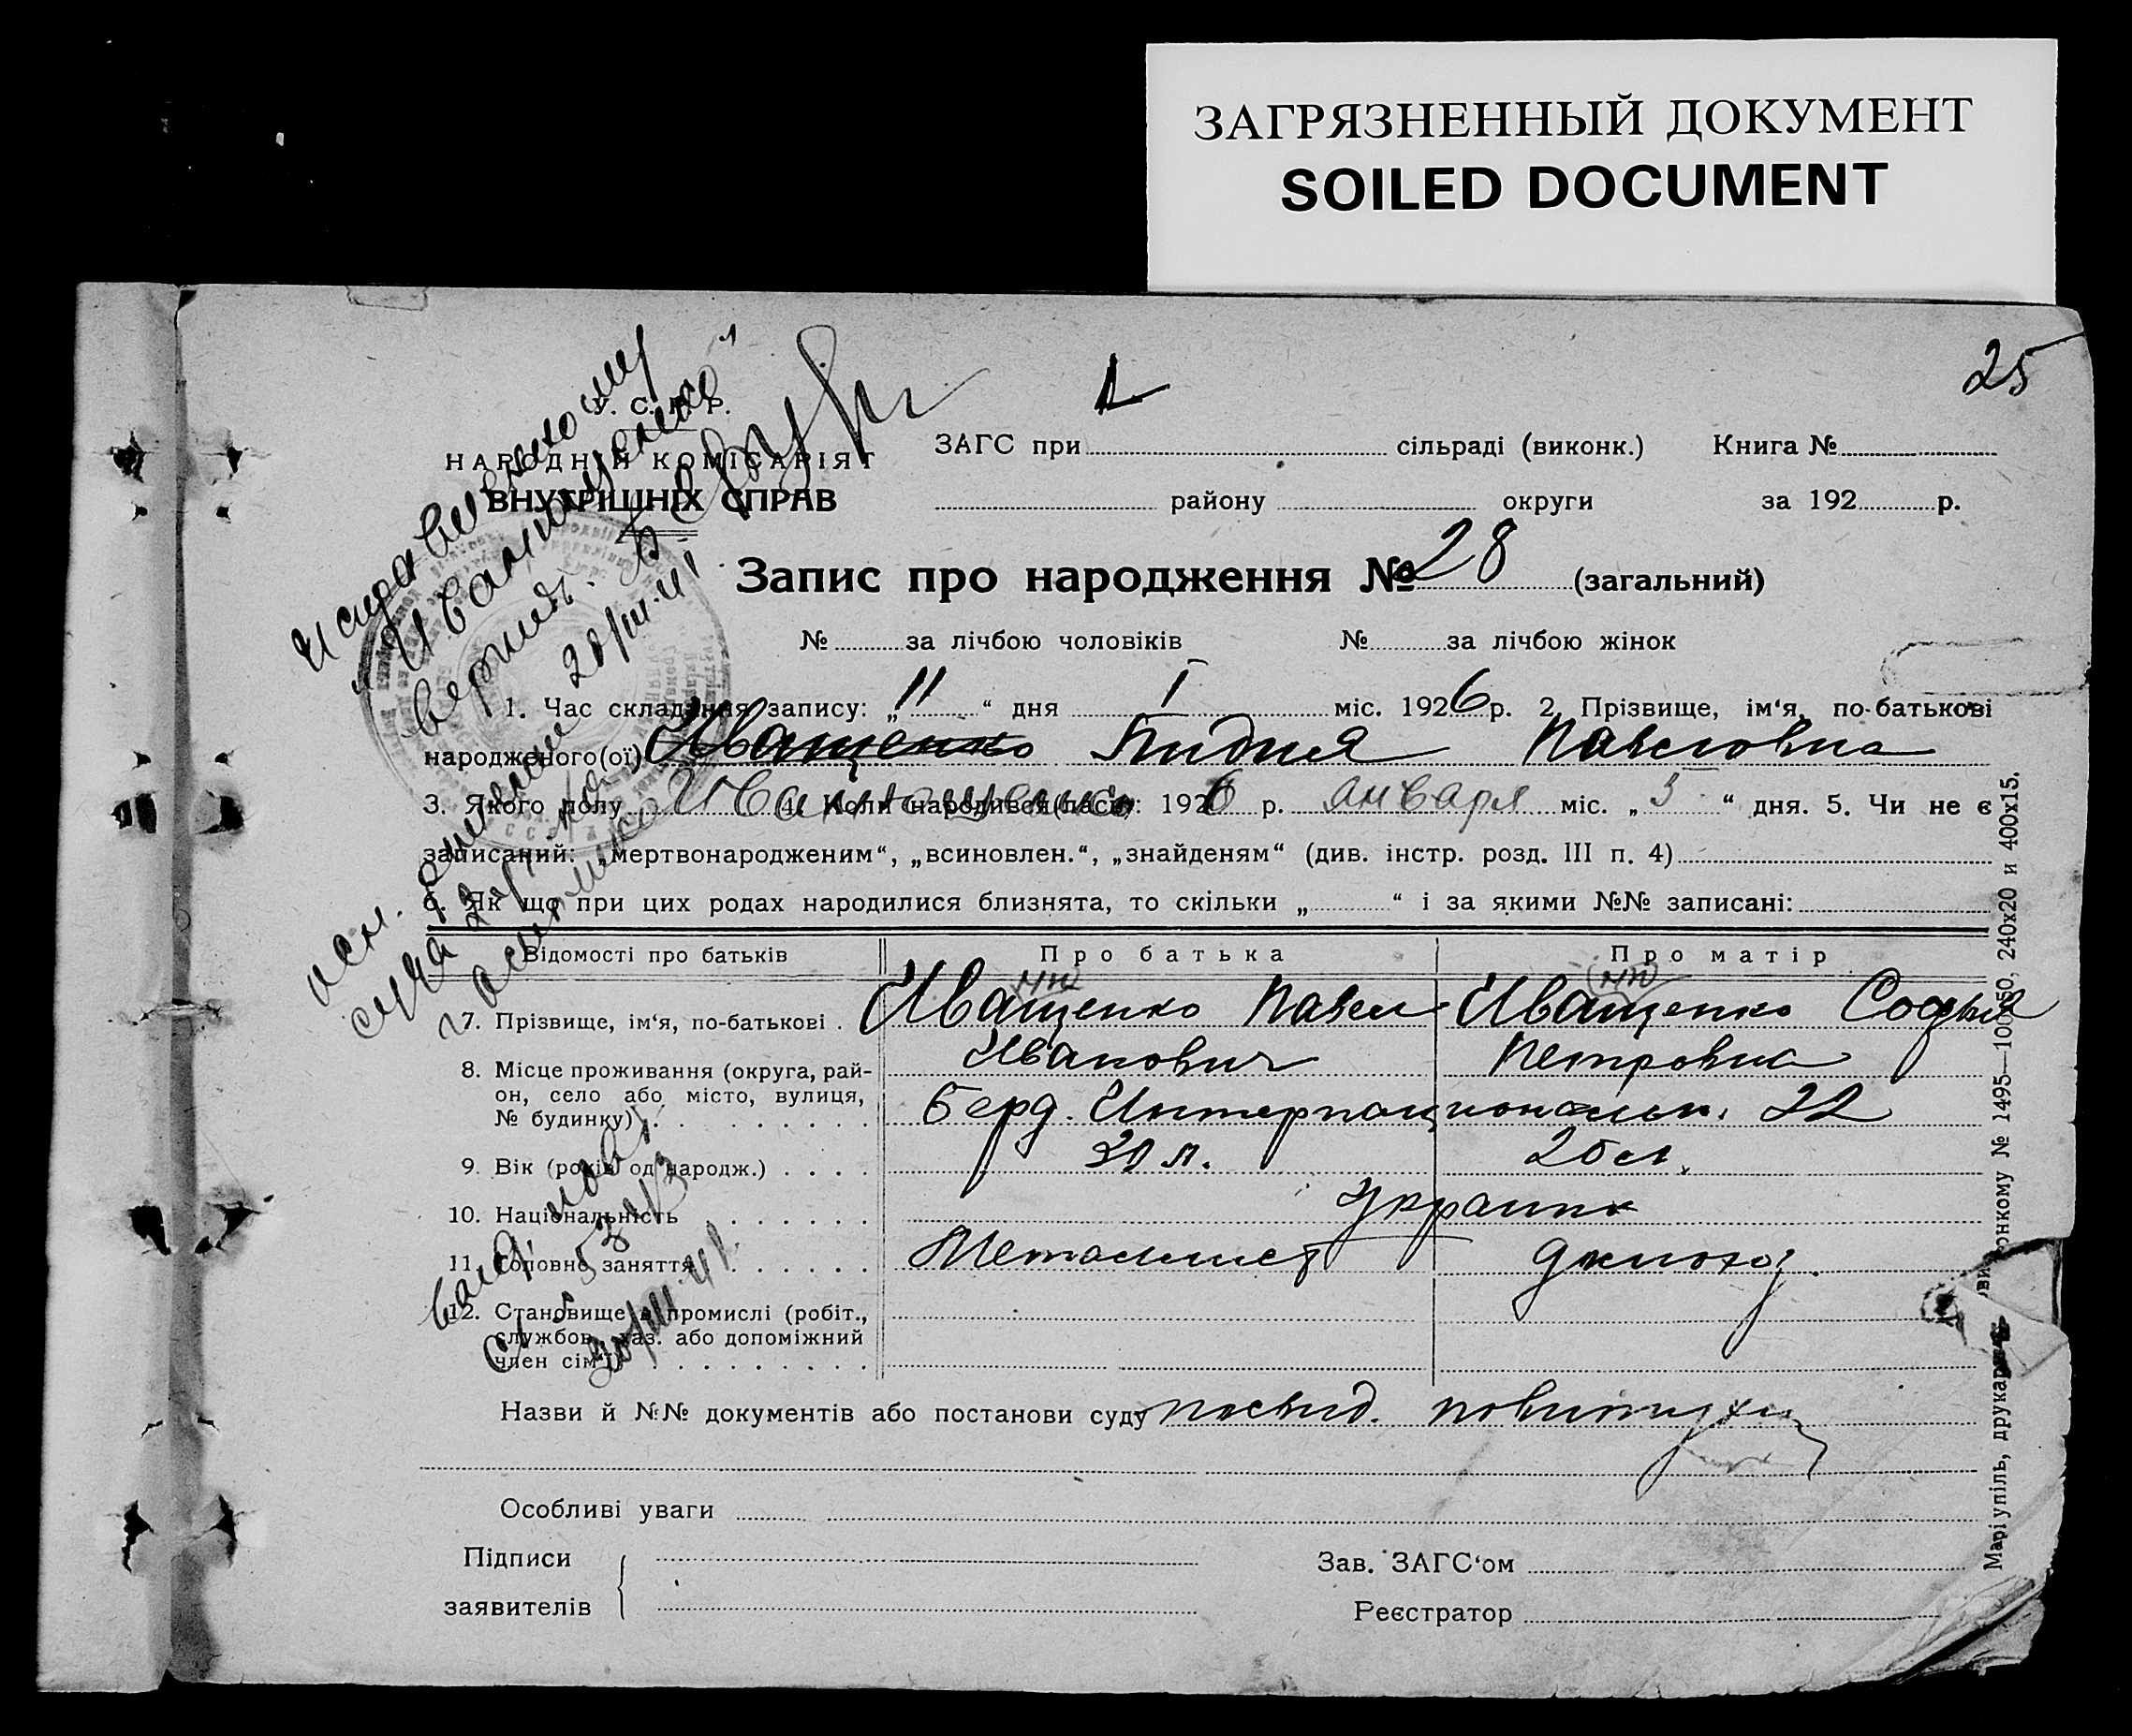 ЗАГРЯЗНЕННЫЙ ДОКУМЕНТ
SOILED DOCUMENT
25
1
У. С. Р. Р.
НАРОДНІЙ КОМІСАРІЯТ
ВНУТРІШНІХ СПРАВ
ЗАГС при сільраді (виконк.) Книга №
району округи за 192 р.
Запис про народження № 28 (загальний)
№ за лічбою чоловіків № за лічбою жінок
1. Час складання запису: „11“ дня I міс. 1926 р. 2. Прізвище, ім‘я, по-батькові
народженого(ої) Иващенко Лидия Павловна
3. Якого полу Иванющенко 4. Коли народився(лась): 1926 р. января міс. „5“ дня. 5. Чи не є
записаний: „мертвонародженим“, „всиновлен.“, „знайденям“ (див. інстр. розд. III п. 4)
6. Як що при цих родах народилися близнята, то скільки „ “ і за якими №№ записані:
Відомості про батьків Про батька Про матір
ню ню
7. Прізвище, ім‘я, по-батькові . Иващенко Павел Иващенко Софья
Иванович Петровна
8. Місце проживання (округа, рай-
он, село або місто, вулиця,
№ будинку) Берд. Интернациональн. 22
9. Вік (років од народж.) 30 л. 25 л.
10. Національність
11. Головне заняття Металист домохоз.
12. Становище в промислі (робіт.,
службов., хаз. або допоміжний
член сім‘ї)
Назви й №№ документів або постанови суду посвид. повитухи
Особливі уваги
Підписи
заявителів
Зав. ЗАГС‘ом
Реєстратор
Исправленному
„Иванющенко“
верить.
20/III-41